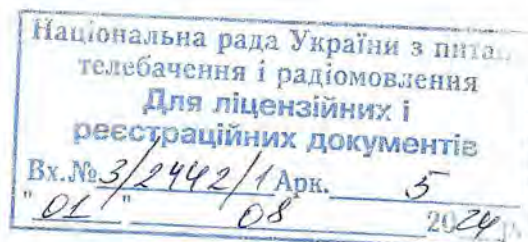 Національна рада України з пита
телебачення і радіомовлення
Для ліцензійних і
реєстраційних документів
Вх.№ 3/2442/1 Арк. 5
"01" 08 2024 р